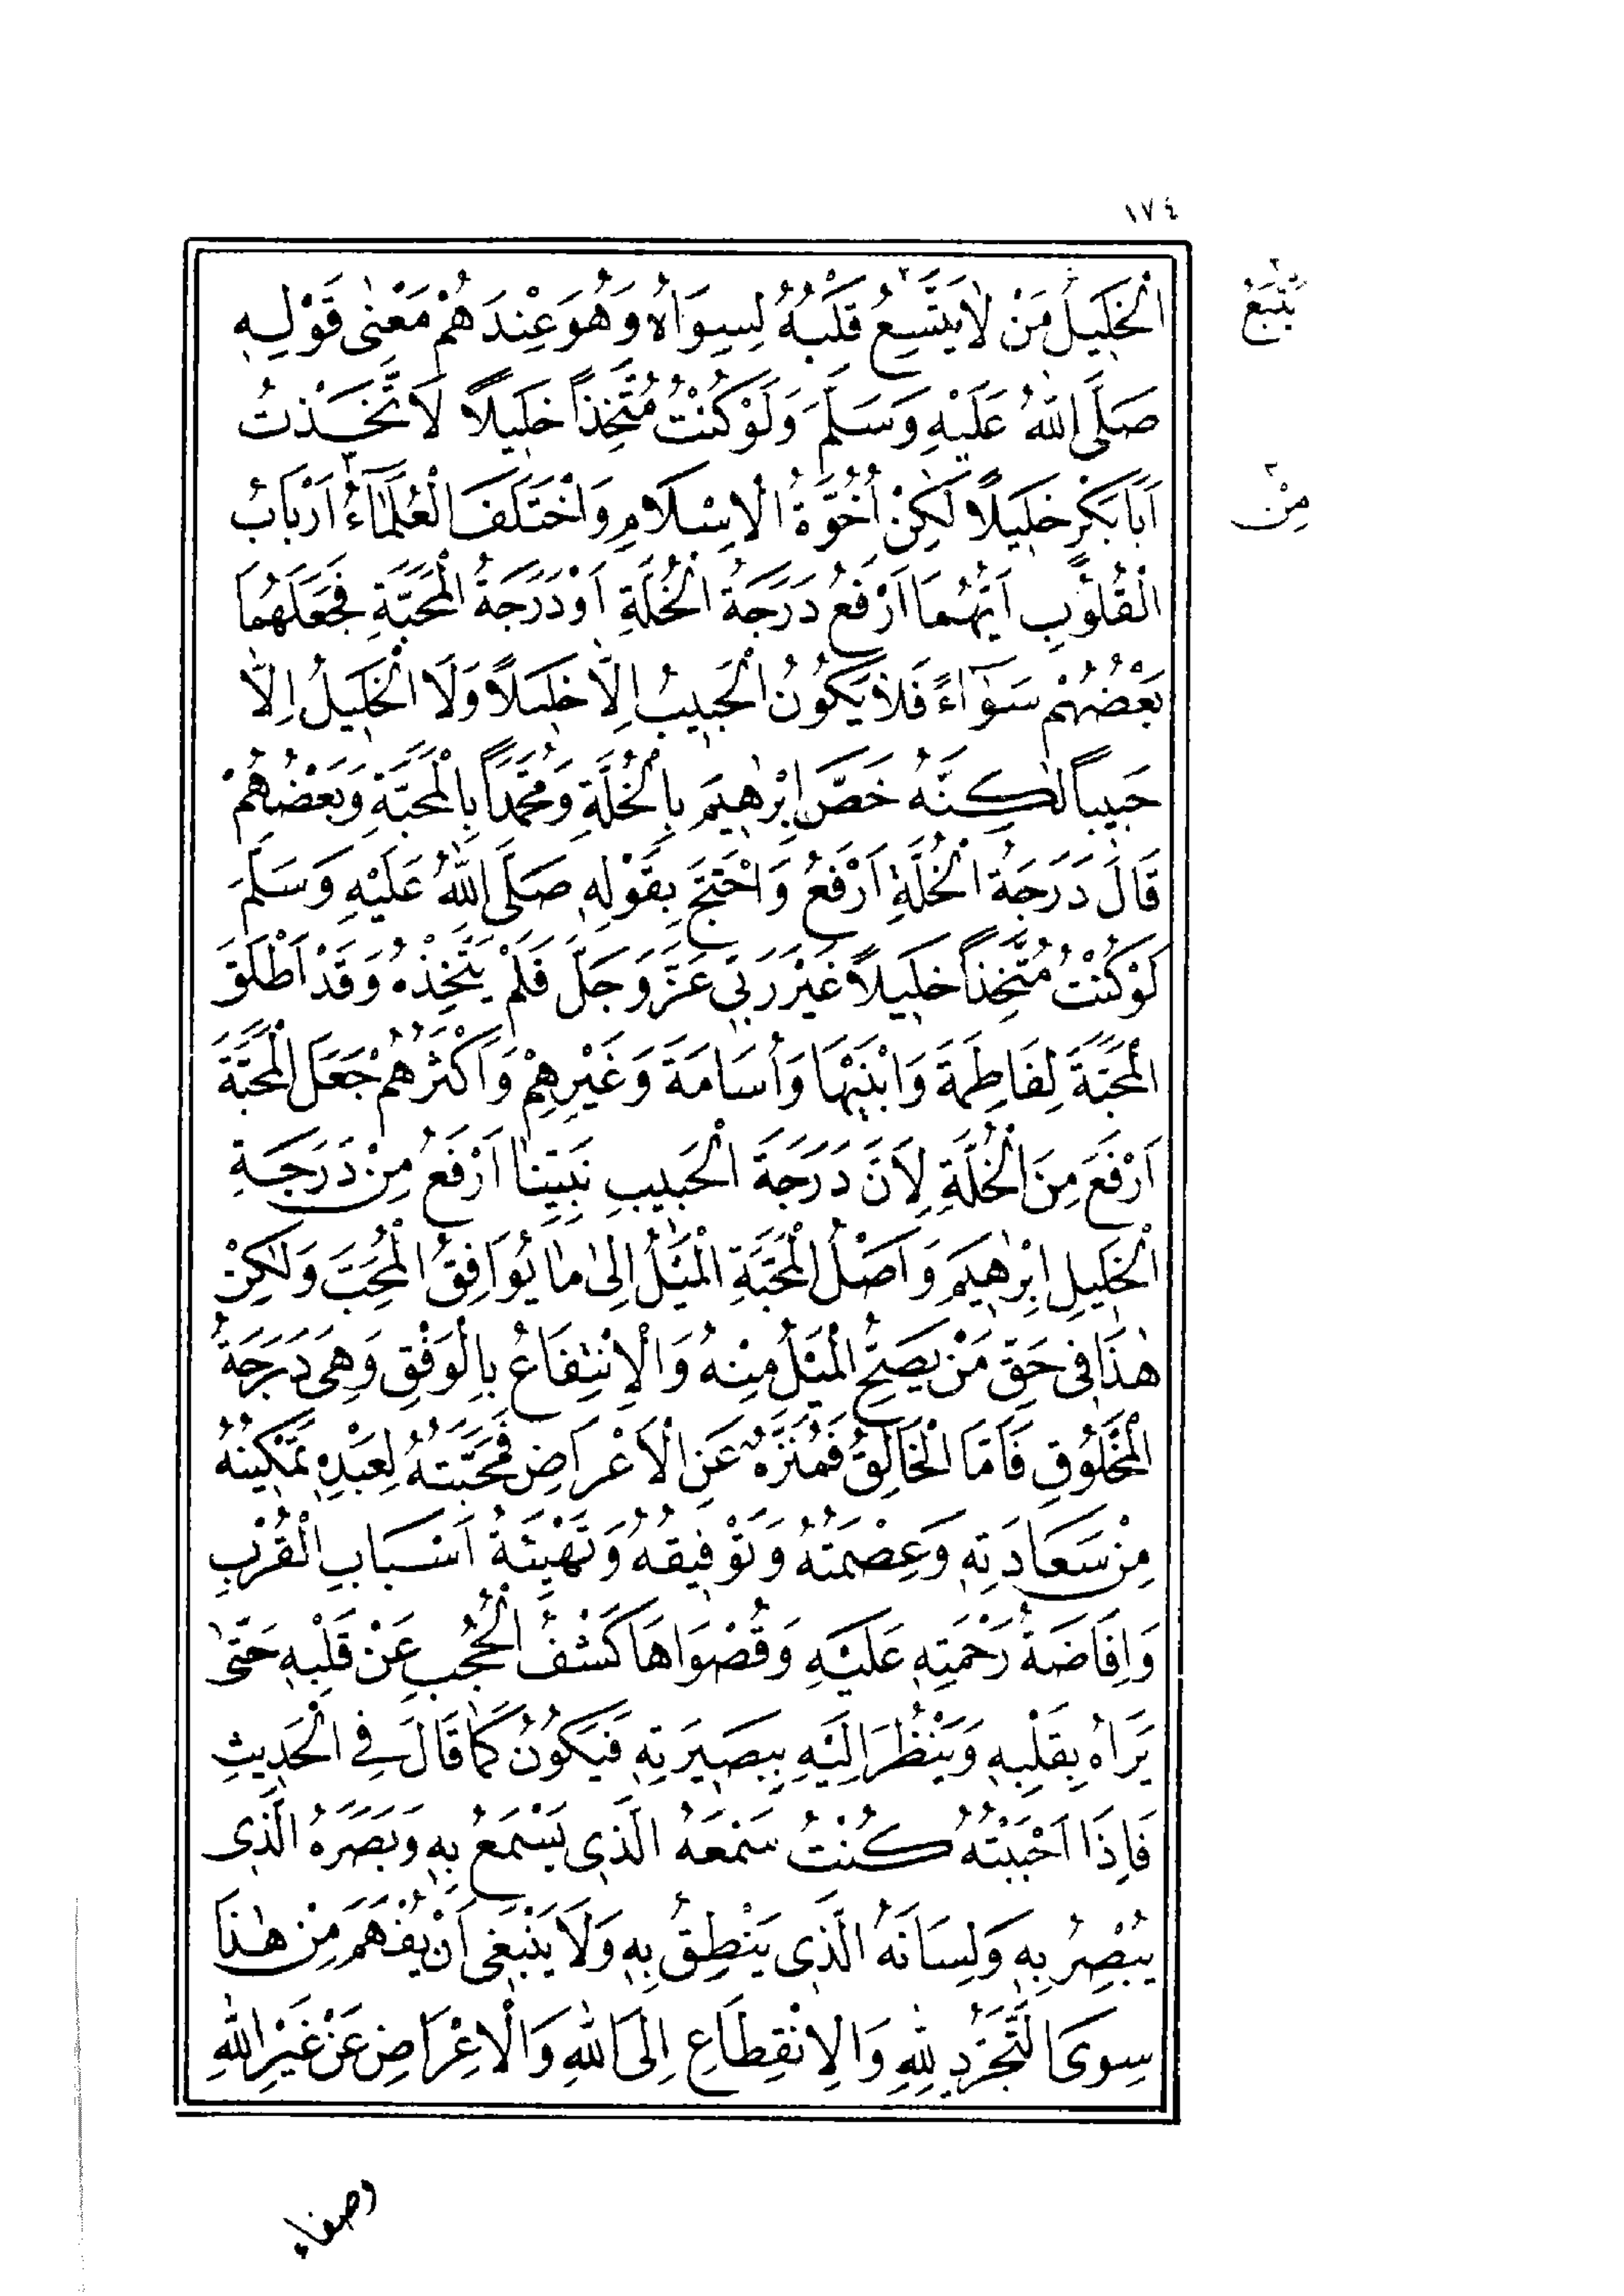 ١٧٤
اَلْخَلِيلُ مَنْ لَا يَتَّسِعُ قَلْبُهُ لِسِوَاهُ وَهُوَ عِنْدَهُمْ مَعْنٰى قَوْلِهِ
يَتَّبِعُ
صَلَّى اللهُ عَلَيْهِ وَسَلَّمَ وَلَوْ كُنْتُ مُتَّخِذاً خَلِيلاً لَاتَّخَذْتُ
اَبَا بَكْرٍ خَلِيلاً لٰكِنْ اُخُوَّةُ الْاِسْلَامِ وَاخْتَلَفَ الْعُلَمَاءُ اَرْبَابُ
مِنْ
الْقُلُوبِ اَيُّهُمَا اَرْفَعُ دَرَجَةُ الْخُلَّةِ اَوْ دَرَجَةُ الْمَحَبَّةِ فَجَعَلَهُمَا
بَعْضُهُمْ سَوَاءً فَلَا يَكُونُ الْحَبِيبُ اِلَّا خَلِيلاً وَلَا الْخَلِيلُ اِلَّا
حَبِيباً لٰكِنَّهُ خَصَّ اِبْرٰهِيمَ بِالْخُلَّةِ وَمُحَمَّداً بِالْمَحَبَّةِ وَبَعْضُهُمْ
قَالَ دَرَجَةُ الْخُلَّةِ اَرْفَعُ وَاحْتَجَّ بِقَوْلِهِ صَلَّى اللهُ عَلَيْهِ وَسَلَّمَ
لَوْ كُنْتُ مُتَّخِذاً خَلِيلاً غَيْرَ رَبِّي عَزَّ وَجَلَّ فَلَمْ يَتَّخِذْهُ وَقَدْ اَطْلَقَ
الْمَحَبَّةَ لِفَاطِمَةَ وَابْنَيْهَا وَاُسَامَةَ وَغَيْرِهِمْ وَاَكْثَرُهُمْ جَعَلَ الْمَحَبَّةَ
اَرْفَعَ مِنَ الْخُلَّةِ لِاَنَّ دَرَجَةَ الْحَبِيبِ نَبِيِّنَا اَرْفَعُ مِنْ دَرَجَةِ
الْخَلِيلِ اِبْرٰهِيمَ وَاَصْلُ الْمَحَبَّةِ الْمَيْلُ اِلٰى مَا يُوَافِقُ الْمُحِبَّ وَلٰكِنْ
هٰذَا فِى حَقِّ مَنْ يَصِحُّ الْمَيْلُ مِنْهُ وَالْاِنْتِفَاعُ بِالْوَفْقِ وَهِىَ دَرَجَةُ
الْمَخْلُوقِ فَاَمَّا الْخَالِقُ فَمُنَزَّهٌ عَنِ الْاَعْرَاضِ فَمَحَبَّتُهُ لِعَبْدِهِ تَمْكِينُهُ
مِنْ سَعَادَتِهِ وَعِصْمَتُهُ وَتَوْفِيقُهُ وَتَهْيِئَةُ اَسْبَابِ الْقُرْبِ
وَاِفَاضَةُ رَحْمَتِهِ عَلَيْهِ وَقُصْوَاهَا كَشْفُ الْحُجُبِ عَنْ قَلْبِهِ حَتّٰى
يَرَاهُ بِقَلْبِهِ وَيَنْظُرَ اِلَيْهِ بِبَصِيرَتِهِ فَيَكُونُ كَمَا قَالَ فِى الْحَدِيثِ
فَاِذَا اَحْبَبْتُهُ كُنْتُ سَمْعَهُ الَّذِى يَسْمَعُ بِهِ وَبَصَرَهُ الَّذِى
يُبْصِرُ بِهِ وَلِسَانَهُ الَّذِى يَنْطِقُ بِهِ وَلَا يَنْبَغِى اَنْ يُفْهَمَ مِنْ هٰذَا
سِوَى التَّجَرُّدِ لِلّٰهِ وَالْاِنْقِطَاعِ اِلَى اللهِ وَالْاِعْرَاضِ عَنْ غَيْرِ اللهِ
وصفاء